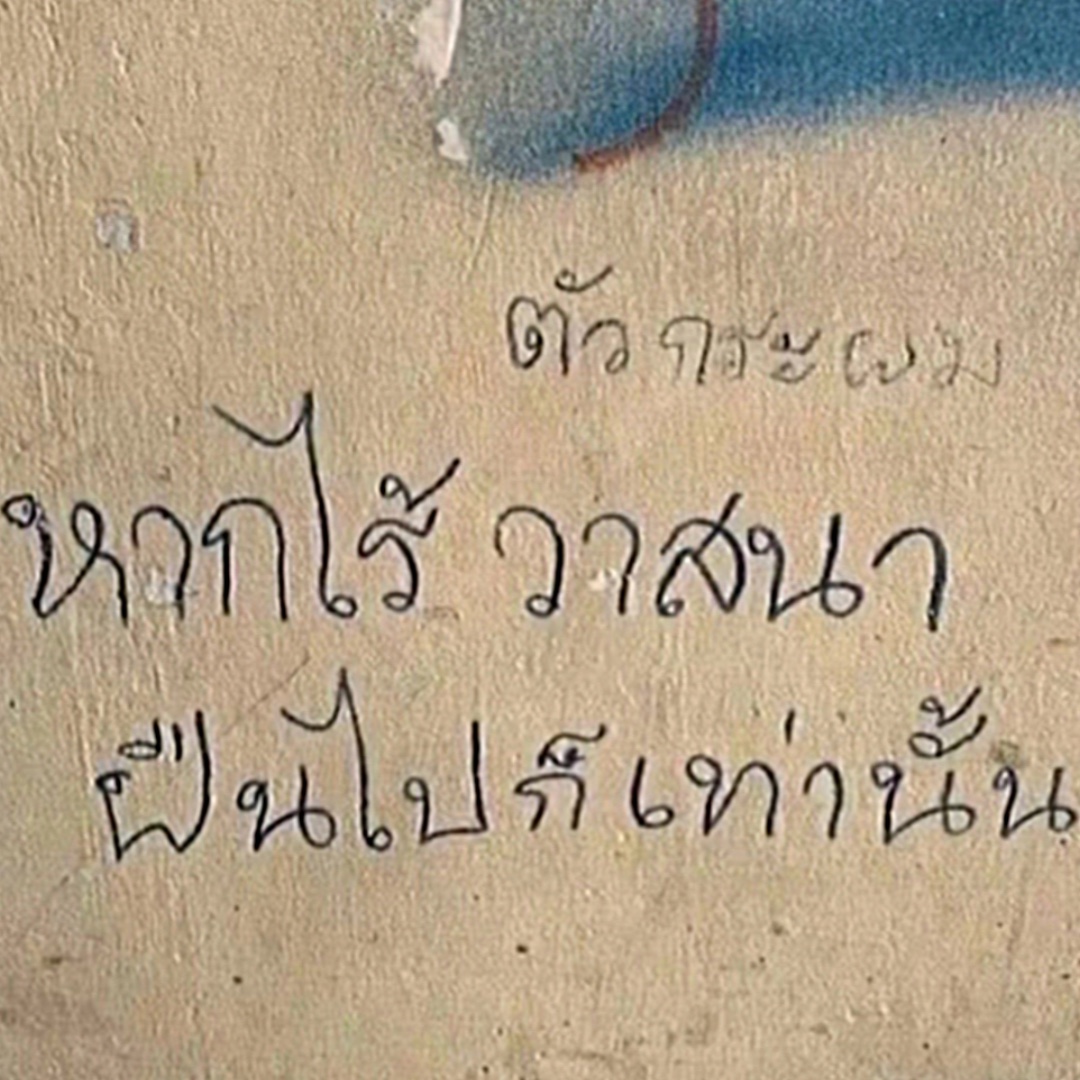 ตัวกระผม
หากไร้ วาสนา
ฝืนไปก็เท่านั้น